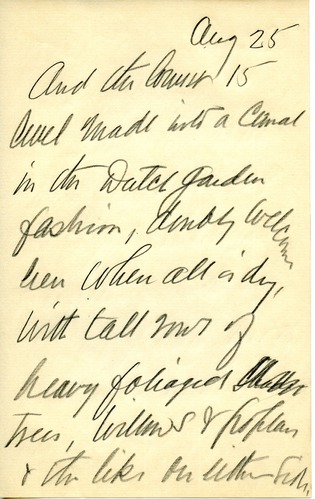 Aug 25
And the lowest 15
level made into a Canal
in the Dutch garden
fashion, doubly welcome
here when all is dry,
with tall rows of
heavy foliaged
trees, Willows & poplars
& the like on either side,